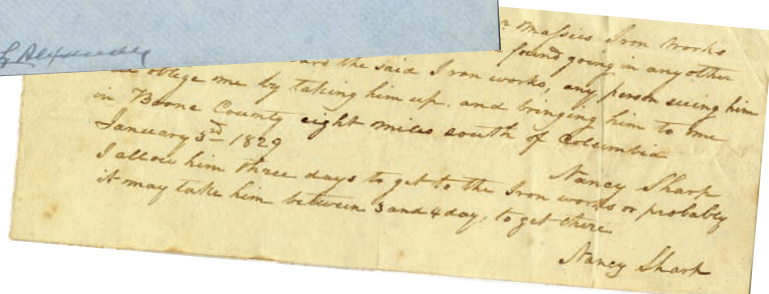 Alexander
Massies Iron Works
found going in any other
the said Iron works, any person seeing him
oblige me by taking him up, and bringing him to me
in Boone County eight miles south of Columbia
January 5th 1829
Nancy Sharp
I allow him three days to get to the Iron works or probably
it may take him between 3 and 4 day, to get there
Nancy Sharp